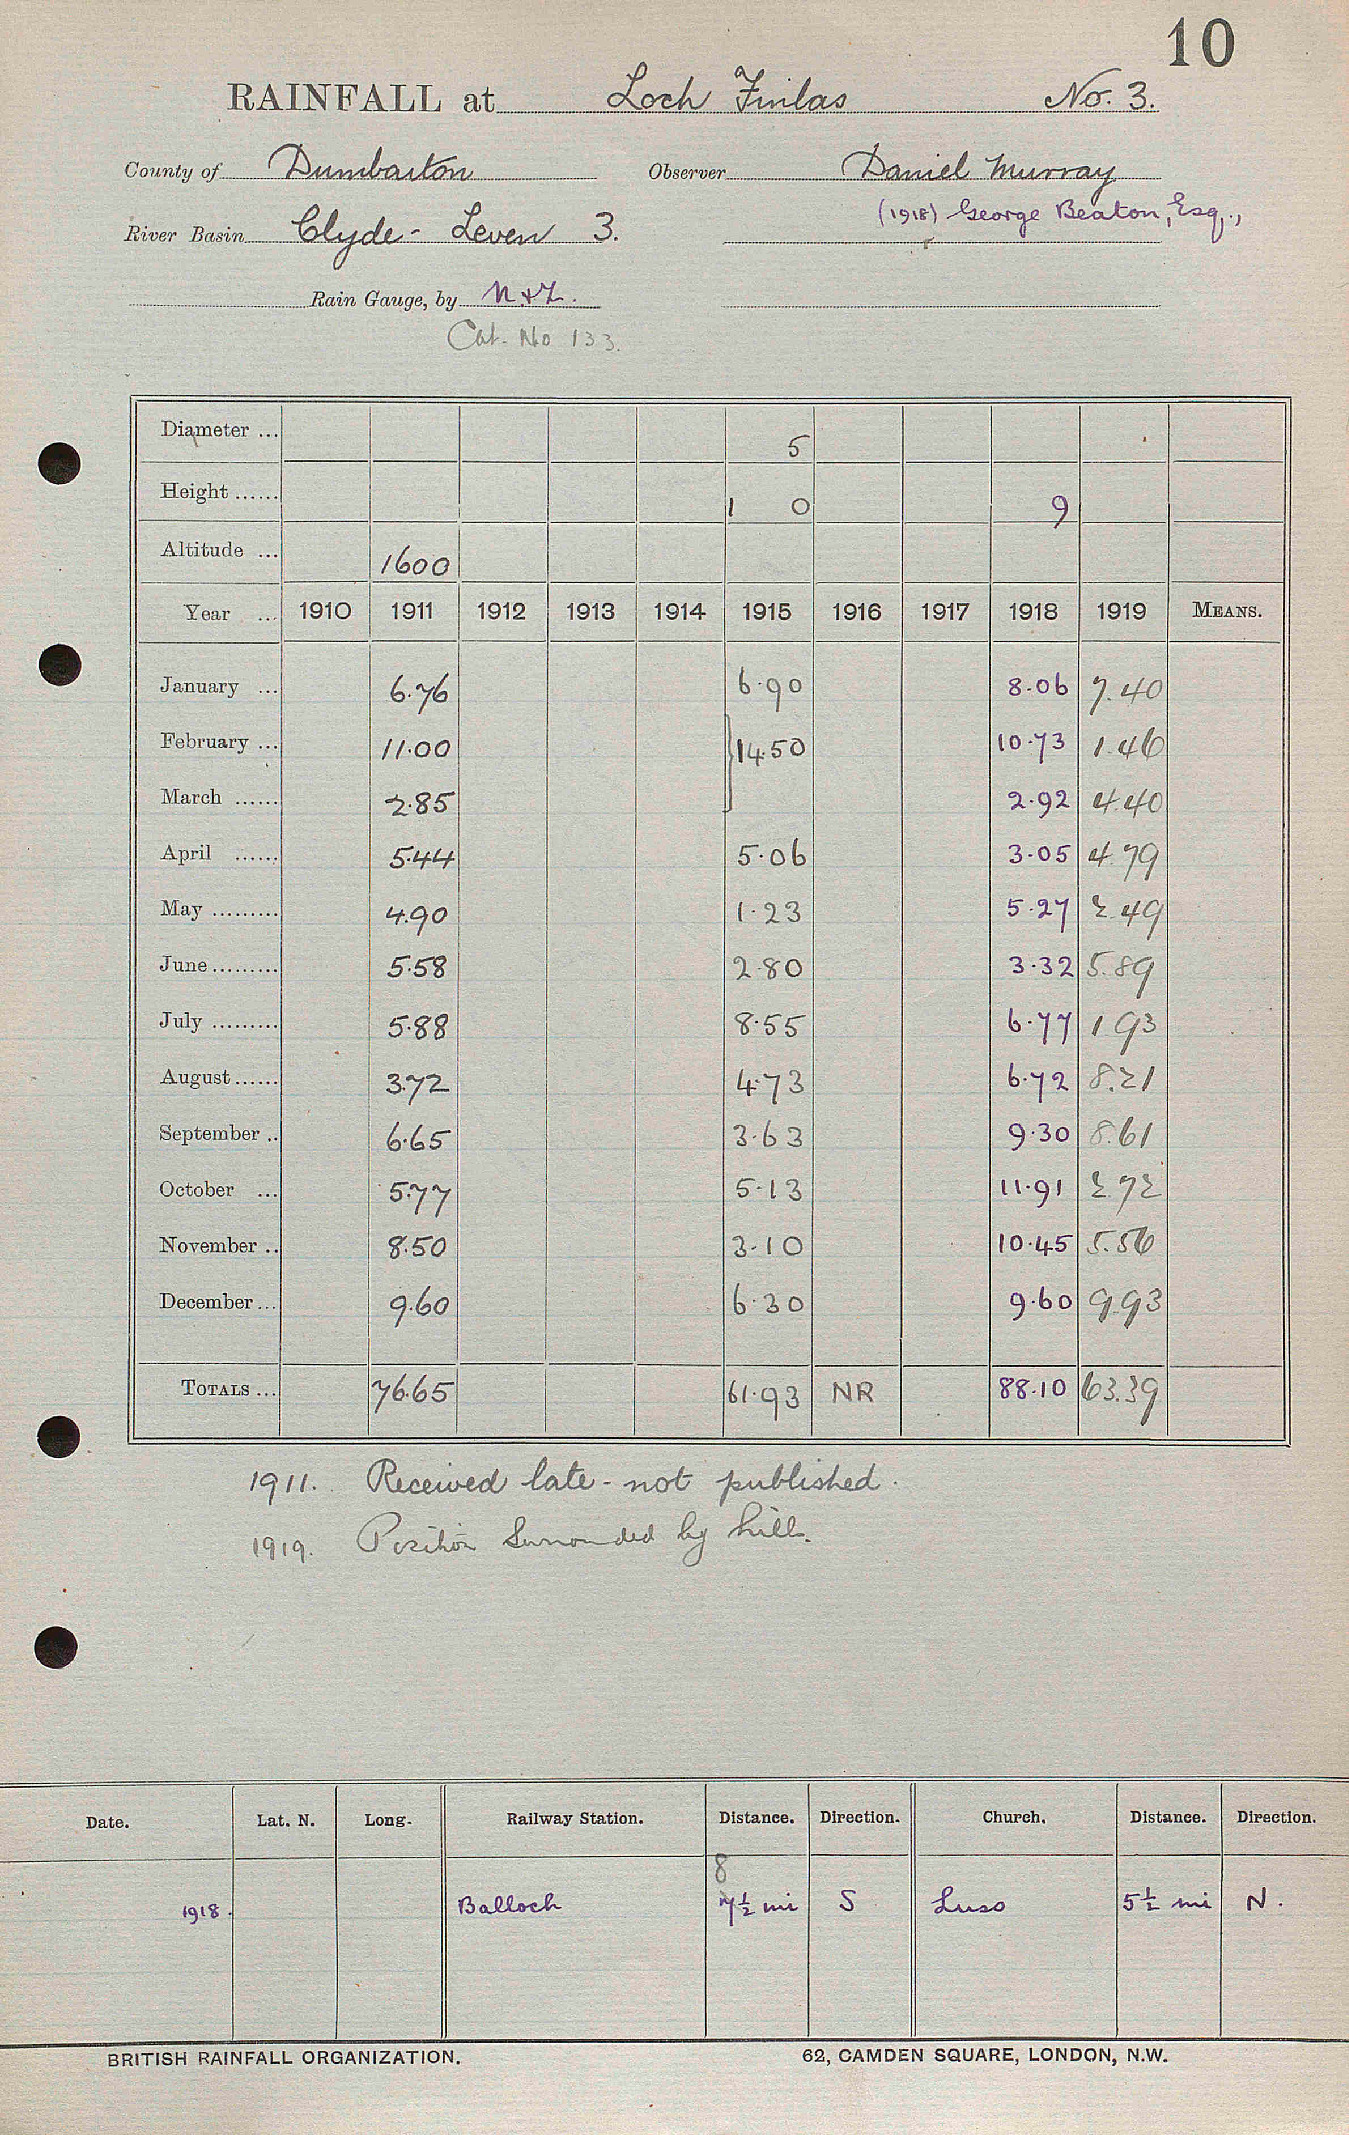 10
RAINFALL at Loch Finlas No. 3.
County of Dumbarton Observer Daniel Murray
(1918) George Beaton, Esq.,
River Basin Clyde - Leven 3.
Rain Gauge, by N & Z.
Cat. No 133.
Diameter ... 5
Height ...... 1 0 9
Altitude ... 1600
Year ... 1910 1911 1912 1913 1914 1915 1916 1917 1918 1919 MEANS.
January ... 6.76 6.90 8.06 7.40
February ... 11.00 }14.50 10.73 1.46
March ...... 2.85 2.92 4.40
April ...... 5.44 5.06 3.05 4.79
May ......... 4.90 1.23 5.27 2.49
June ......... 5.58 2.80 3.32 5.89
July ......... 5.88 8.55 6.77 1 93
August ...... 3.72 4.73 6.72 8.21
September .. 6.65 3.63 9.30 8.61
October ... 5.77 5.13 11.91 2.72
November .. 8.50 3.10 10.45 5.56
December ... 9.60 6.30 9.60 9.93
TOTALS ... 76.65 61.93 NR 88.10 63.39
1911. Received late - not published.
1919. Position surrounded by hills.
Date. Lat. N. Long. Railway Station. Distance. Direction. Church. Distance. Direction.
8
1918. Balloch 7½ mi S Luss 5½ mi N.
BRITISH RAINFALL ORGANIZATION. 62, CAMDEN SQUARE, LONDON, N.W.